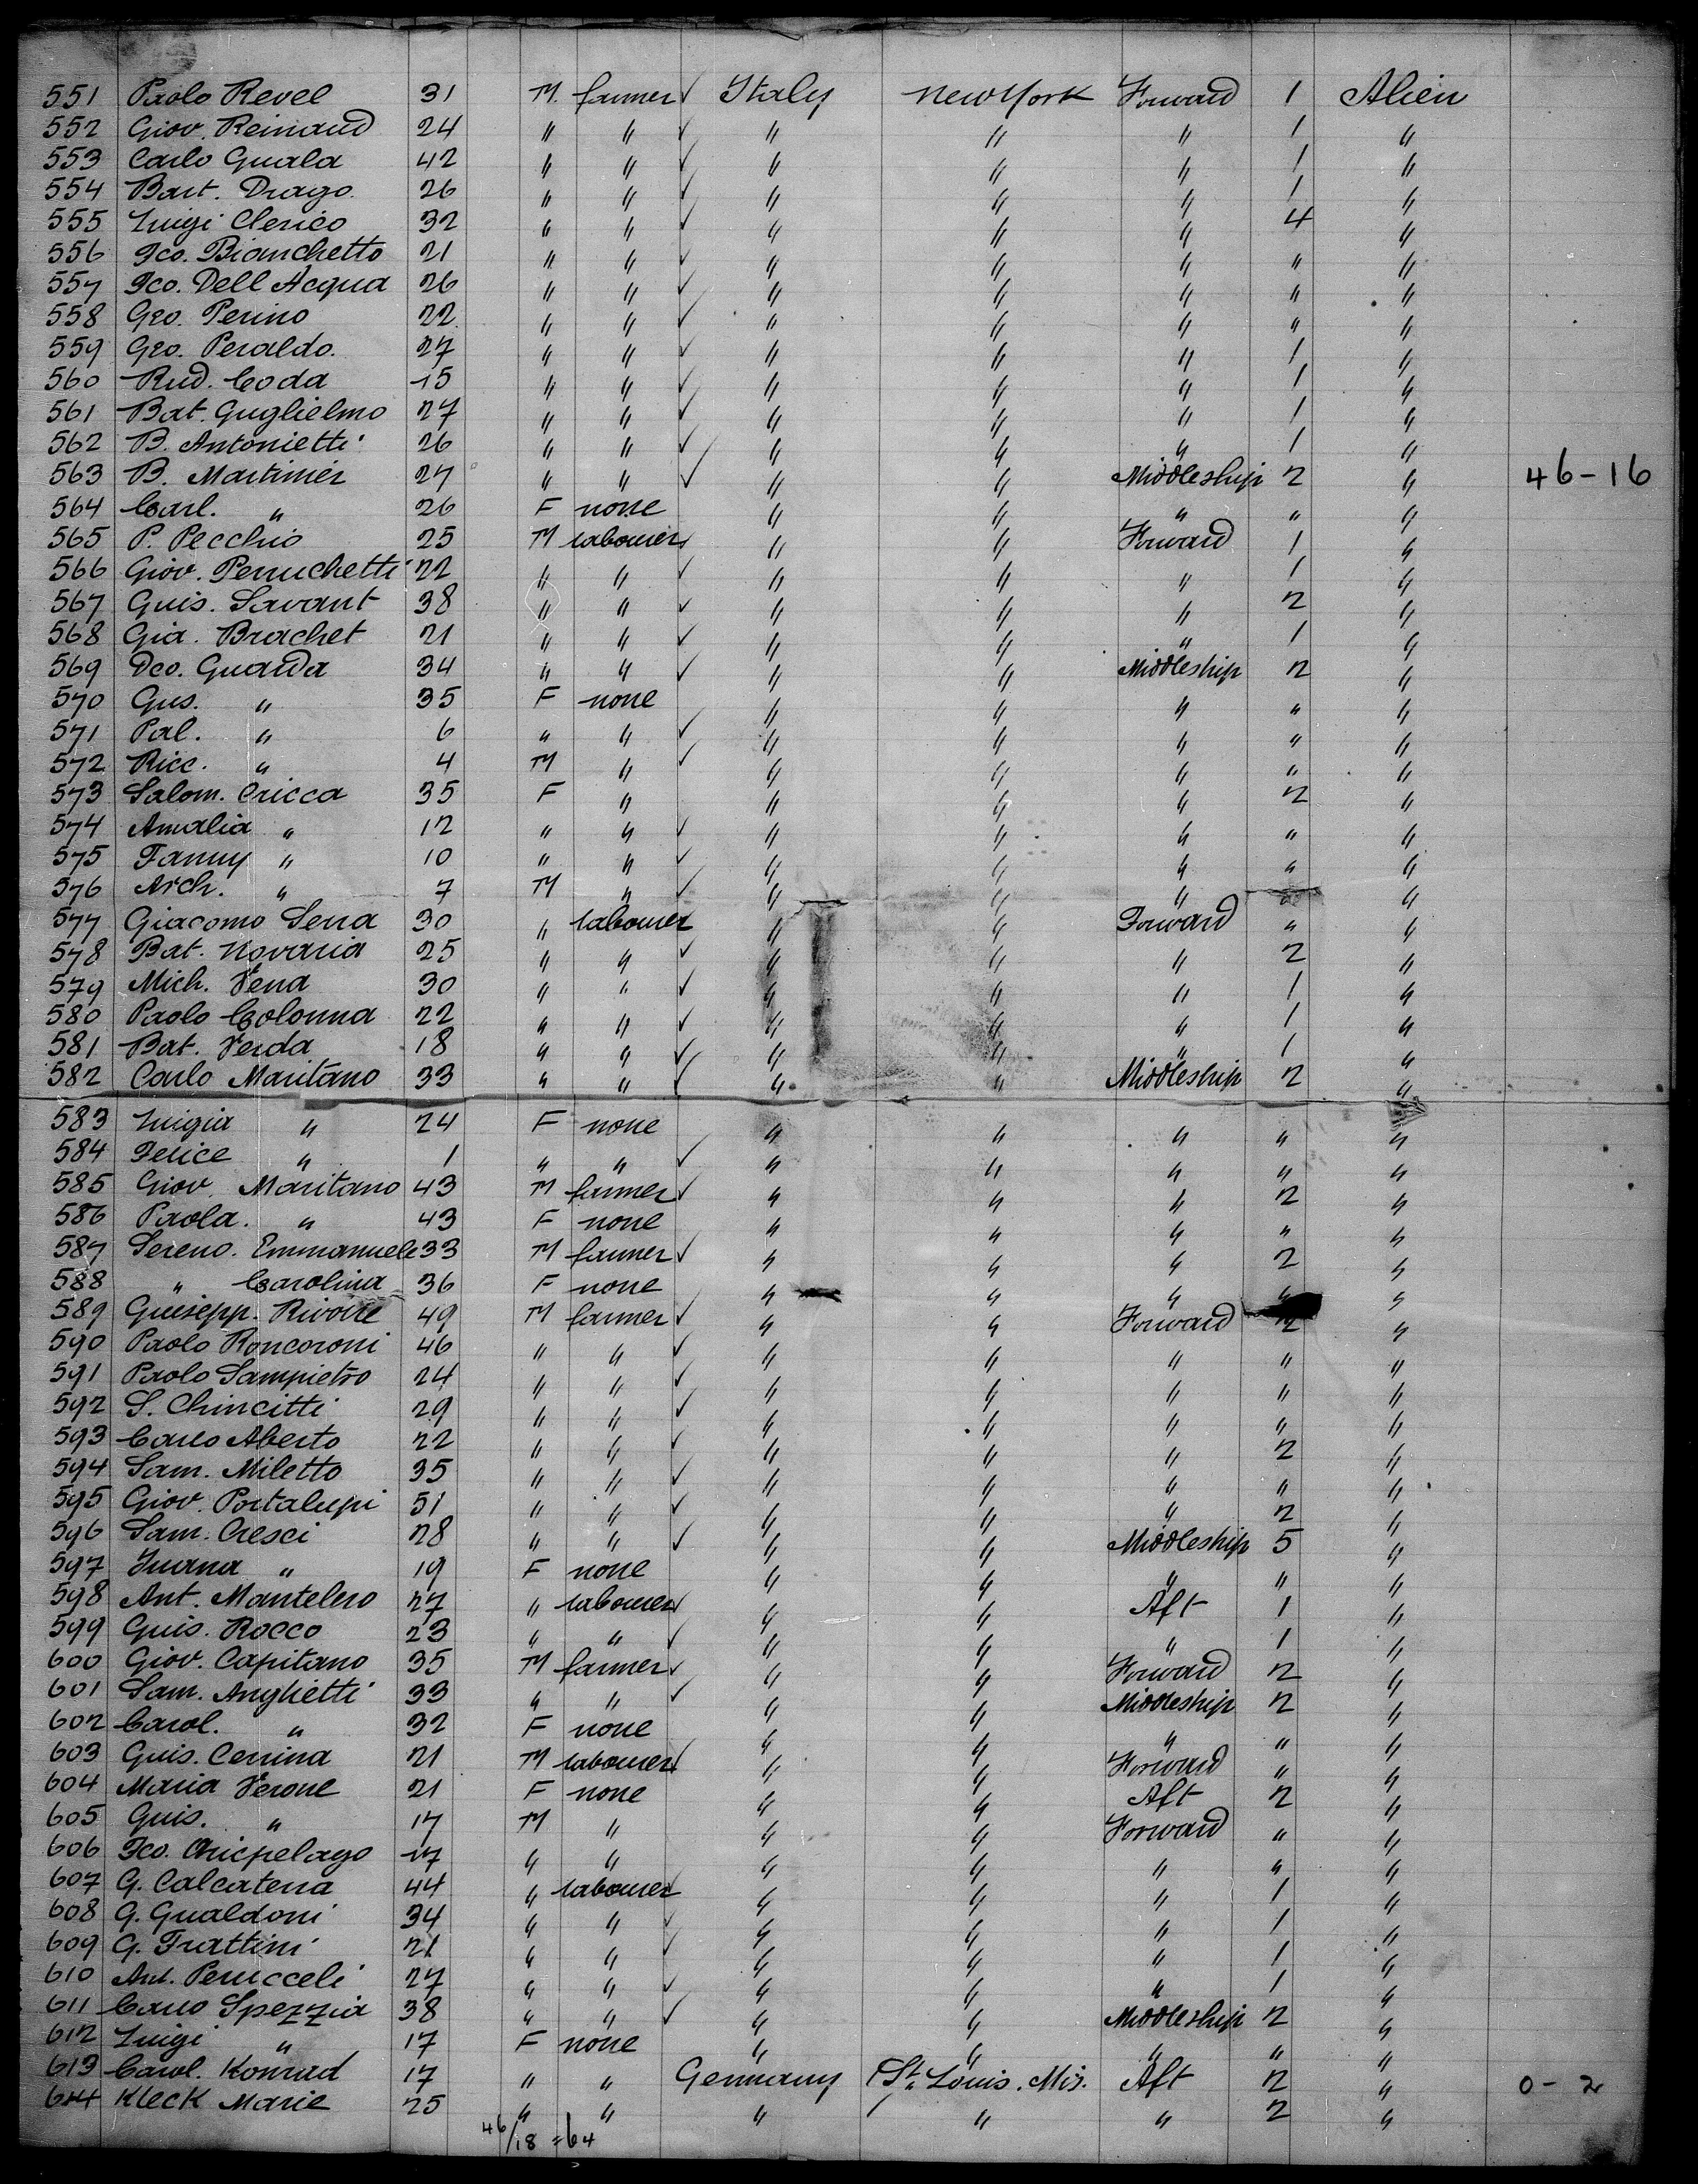 551 Paolo Revel 31 M. farmer ✓ Italy New York Forward 1 Alien
552 Giov. Reinaud 24 " " ✓ " " " 1 "
553 Carlo Guala 42 " " ✓ " " " 1 "
554 Bart. Drago. 26 " " ✓ " " " 1 "
555 Luigi Clerico 32 " " ✓ " " " 4 "
556 Fco. Bianchetto 21 " " ✓ " " " " "
557 Fco. Dell Acqua 26 " " ✓ " " " " "
558 Geo. Perino 22 " " ✓ " " " " "
559 Geo. Peraldo. 27 " " ✓ " " " 1 "
560 Rud. Coda 15 " " ✓ " " " 1 "
561 Bat. Guglielmo 27 " " ✓ " " " 1 "
562 B. Antonietti 26 " " ✓ " " " 1 "
563 B. Martiner 27 " " ✓ " " Middleship 2 " 46-16
564 Carl. " 26 F none " " " " "
565 P. Pecchio 25 M labourer " " Forward 1 "
566 Giov. Peruchetti 22 " " ✓ " " " 1 "
567 Guis. Savant 38 " " ✓ " " " 2 "
568 Gia. Brachet 21 " " ✓ " " " 1 "
569 Dco. Guarda 34 " " ✓ " " Middleship 2 "
570 Gus. " 35 F none " " " " "
571 Pal. " 6 " " ✓ " " " " "
572 Ricc. " 4 M " ✓ " " " " "
573 Salom. Cricca 35 F " " " " 2 "
574 Amalia " 12 " " ✓ " " " " "
575 Fanny " 10 " " ✓ " " " " "
576 Arch. " 7 M " ✓ " " " " "
577 Giacomo Serra 30 " labourer " " Forward " "
578 Bat. Novaria 25 " " ✓ " " " 2 "
579 Mich. Vena 30 " " ✓ " " " 1 "
580 Paolo Colonna 22 " " ✓ " " " 1 "
581 Bat. Verda 18 " " ✓ " " " 1 "
582 Carlo Maritano 33 " " ✓ " " Middleship 2 "
583 Luigia " 24 F none " " " " "
584 Felice " 1 " " ✓ " " " " "
585 Giov. Maritano 43 M farmer ✓ " " " 2 "
586 Paola. " 43 F none " " " " "
587 Sereno. Emmanuele 33 M farmer ✓ " " " 2 "
588 " Carolina 36 F none " " " " "
589 Guisepp. Rivoire 49 M farmer ✓ " " Forward 2 "
590 Paolo Roncoroni 46 " " ✓ " " " " "
591 Paolo Sampietro 24 " " ✓ " " " " "
592 S. Chincitti 29 " " ✓ " " " " "
593 Carlo Aberto 22 " " ✓ " " " 2 "
594 Sam. Miletto 35 " " ✓ " " " " "
595 Giov. Portalupi 51 " " ✓ " " " 2 "
596 Sam. Cresci 28 " " ✓ " " Middleship 5 "
597 Juana " 19 F none " " " " "
598 Ant. Mantelero 27 " labourer ✓ " " Aft 1 "
599 Guis. Rocco 23 " " ✓ " " " 1 "
600 Giov. Capitano 35 M farmer ✓ " " Forward 2 "
601 Sam. Anghetti 33 " " ✓ " " Middleship 2 "
602 Carol. " 32 F none " " " " "
603 Guis. Cerrina 21 M labourer ✓ " " Forward " "
604 Maria Verone 21 F none " " Aft 2 "
605 Guis. " 17 M " " " Forward " "
606 Fco. 17 " " " " " " "
607 G. Calcaterra 44 " labourer ✓ " " " 1 "
608 G. Gualdoni 34 " " ✓ " " " 1 "
609 G. Frattini 21 " " ✓ " " " 1 "
610 Ant. Perucceli 27 " " ✓ " " " 1 "
611 Carlo Spezzia 38 " " ✓ " " Middleship 2 "
612 Luigi " 17 F none " " " " "
613 Carol. Konrad 17 " " Germany St. Louis. Mis. Aft 2 " 0-2
614 Kleck Marie 25 " " " " " 2 "
46/18 = 64